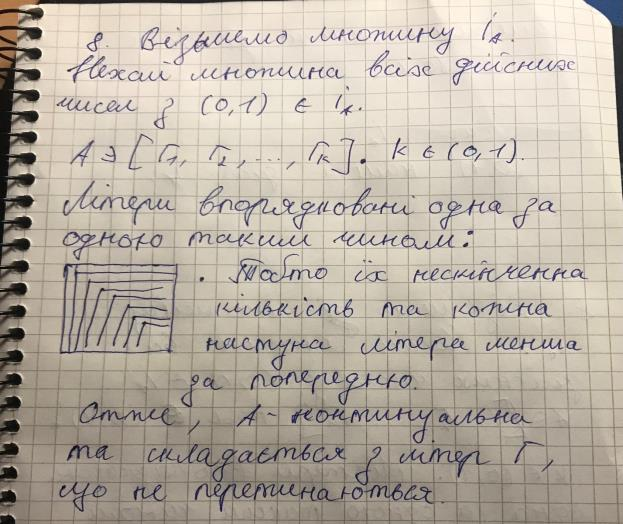 8. Візьмемо множину i_A.
Нехай множина всіх дійсних
чисел з (0,1) є i_A.
A ∋ [Г₁, Г₂, ..., Гₖ]. k ∈ (0,1).
Літери впорядковані одна за
одною таким чином:
. Тобто їх нескінченна
кількість та кожна
наступна літера менша
за попередню.
Отже, A - континуальна
та складається з літер Г,
що не перетинаються.